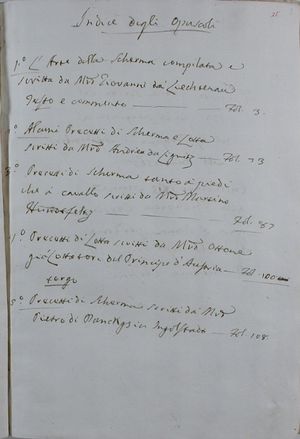 Indice degli Opuscoli
1.° L'Arte della Scherma compilata e
scritta da M.ro Giovanni da Liechtenau
Testo e commento — Fol. 3.
Alcuni Precetti di Scherma e Lotta
scritti da M.ro Andrea da Lignitz — Fol. 73
3.° Precetti di Scherma tanto a piedi
che a cavallo scritti da M.ro Martino
Hundsfeltz
Fol. 87
Precetti di Lotta scritti da M.ro Ottone
già Lottatore dal Principe d'Austria — Fol. 100
tergo
5.° Precetti di Scherma scritti da M.ro
Pietro di Danckgs in Ingolstadt — Fol. 108.